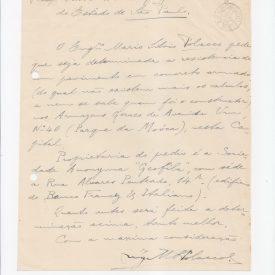 do Estado de São Paulo.
O Engº Mario Silvio Polacco pede
que seja determinada a resistencia de
um pavimento em concreto armado
(do qual não existem mais os calculos,
e nem se sabe quem foi o constructor)
nos Armazens Geraes da Avenida
Nº 40 (Parque da Moóca), nesta Ca-
pital.
Proprietaria do predio é a Socie-
dade Anonyma "Geofila", com séde
a Rua Alvares Penteado, 14 (edificio
do Banco Francez & Italiano).
Quanto antes será feita a deter-
minação acima, tanto melhor.
Com a maxima consideração
Polacco